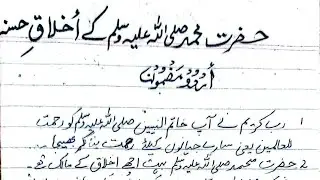 حضرت محمد صلی اللہ علیہ وسلم کے اخلاقِ حسنہ
اُردُو مضمون
1 رب کریم نے آپ خاتم النبیین صلی اللہ علیہ وسلم کو رحمت
للعالمین یعنی سارے جہانوں کیلئے رحمت بنا کر بھیجا۔
2 حضرت محمد صلی اللہ علیہ وسلم بہت اچھے اخلاق کے مالک تھے۔